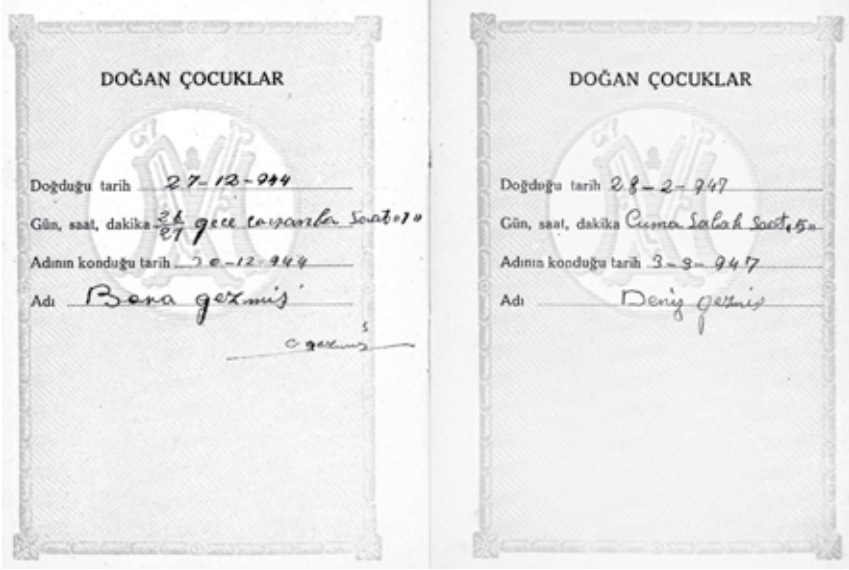 DOĞAN ÇOCUKLAR
Doğduğu tarih 27-12-944
Gün, saat, dakika 26/27 gece çarşanba Saat "1"
Adının konduğu tarih 30-12-944
Adı Bora gezmiş
C gezmiş
DOĞAN ÇOCUKLAR
Doğduğu tarih 28-2-947
Gün, saat, dakika Cuma Sabah Saat "5"
Adının konduğu tarih 3-3-947
Adı Deniz gezmiş